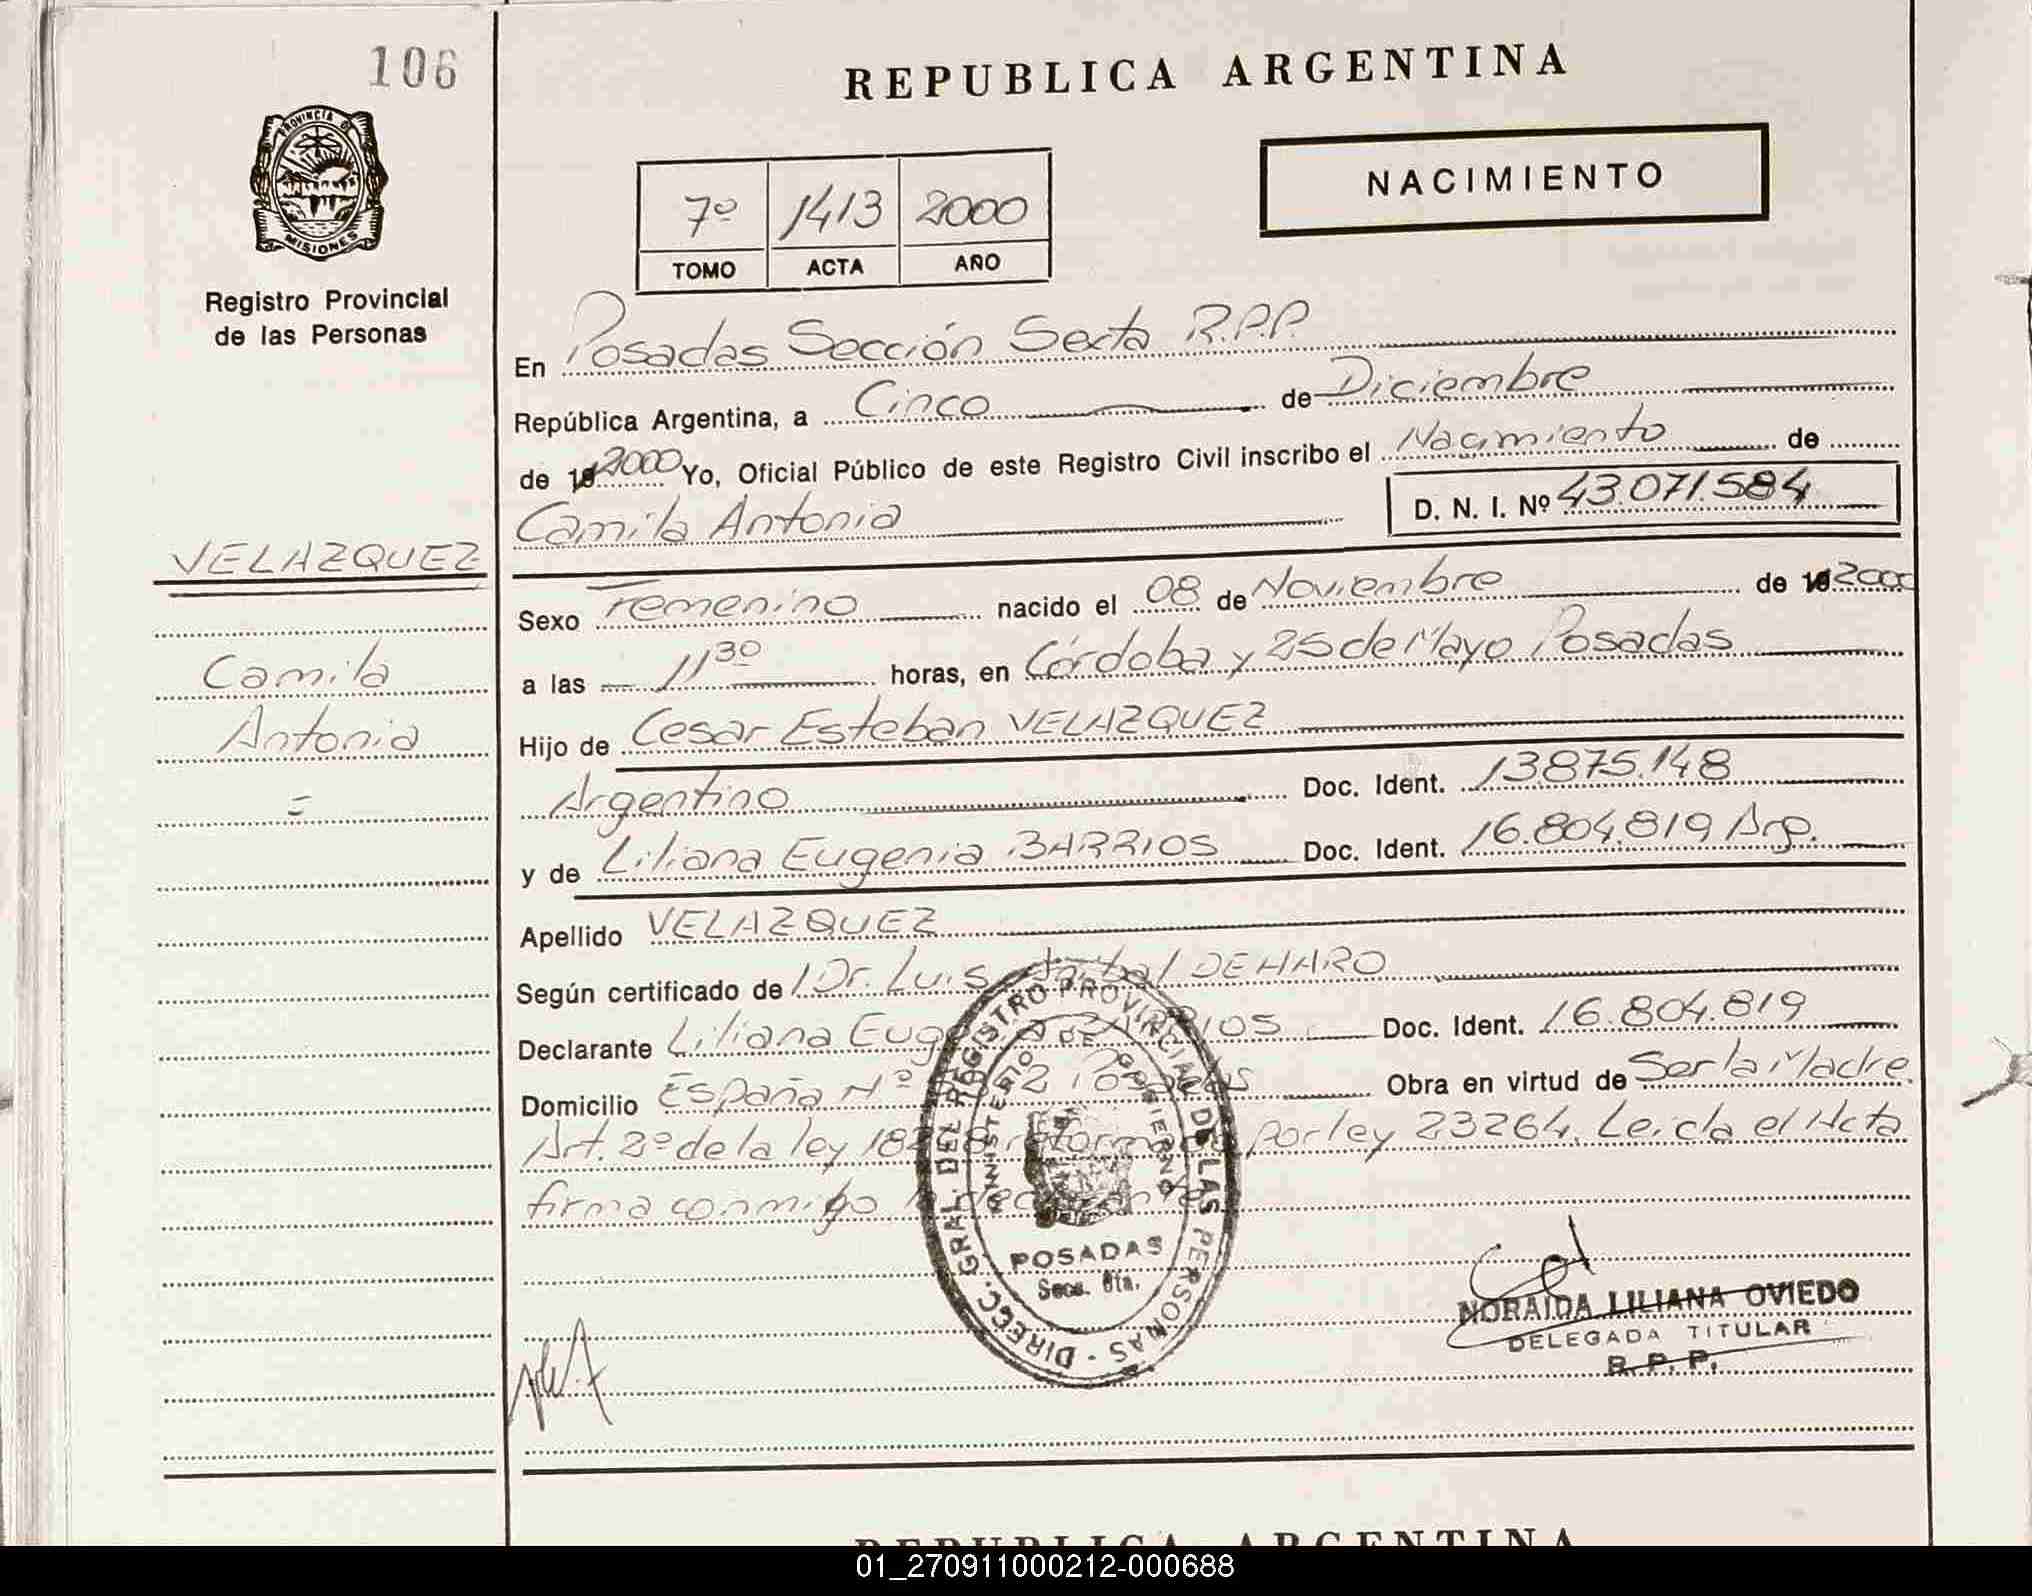 106
REPUBLICA ARGENTINA
NACIMIENTO
7º 1413 2000
TOMO ACTA AÑO
PROVINCIA DE MISIONES
Registro Provincial
de las Personas
En Posadas Sección Sexta R.P.P.
República Argentina, a Cinco de Diciembre
de 192000 Yo, Oficial Público de este Registro Civil inscribo el Nacimiento de
Camila Antonia D. N. I. Nº 43.071.584
VELAZQUEZ
Camila
Antonia
=
Sexo Femenino nacido el 08 de Noviembre de 192000
a las 11 30 horas, en Córdoba y 25 de Mayo Posadas
Hijo de Cesar Esteban VELAZQUEZ
Argentino Doc. Ident. 13875.148
y de Liliana Eugenia BARRIOS Doc. Ident. 16.804.819 Arg.
Apellido VELAZQUEZ
Según certificado de Dr. Luis DE HARO
Declarante Liliana Eugenia BARRIOS Doc. Ident. 16.804.819
Domicilio España Nº Posadas Obra en virtud de Ser la Madre
Art. 2º de la ley por ley 23264. Leída el Acta
firma conmigo la declarante
DIREC. GRAL. DEL REGISTRO PROVINCIAL DE LAS PERSONAS -
MINISTERIO DE GOBIERNO
POSADAS
Secc. 6ta.
NORAIDA LILIANA OVIEDO
DELEGADA TITULAR
R. P. P.
REPUBLICA ARGENTINA
01_270911000212-000688